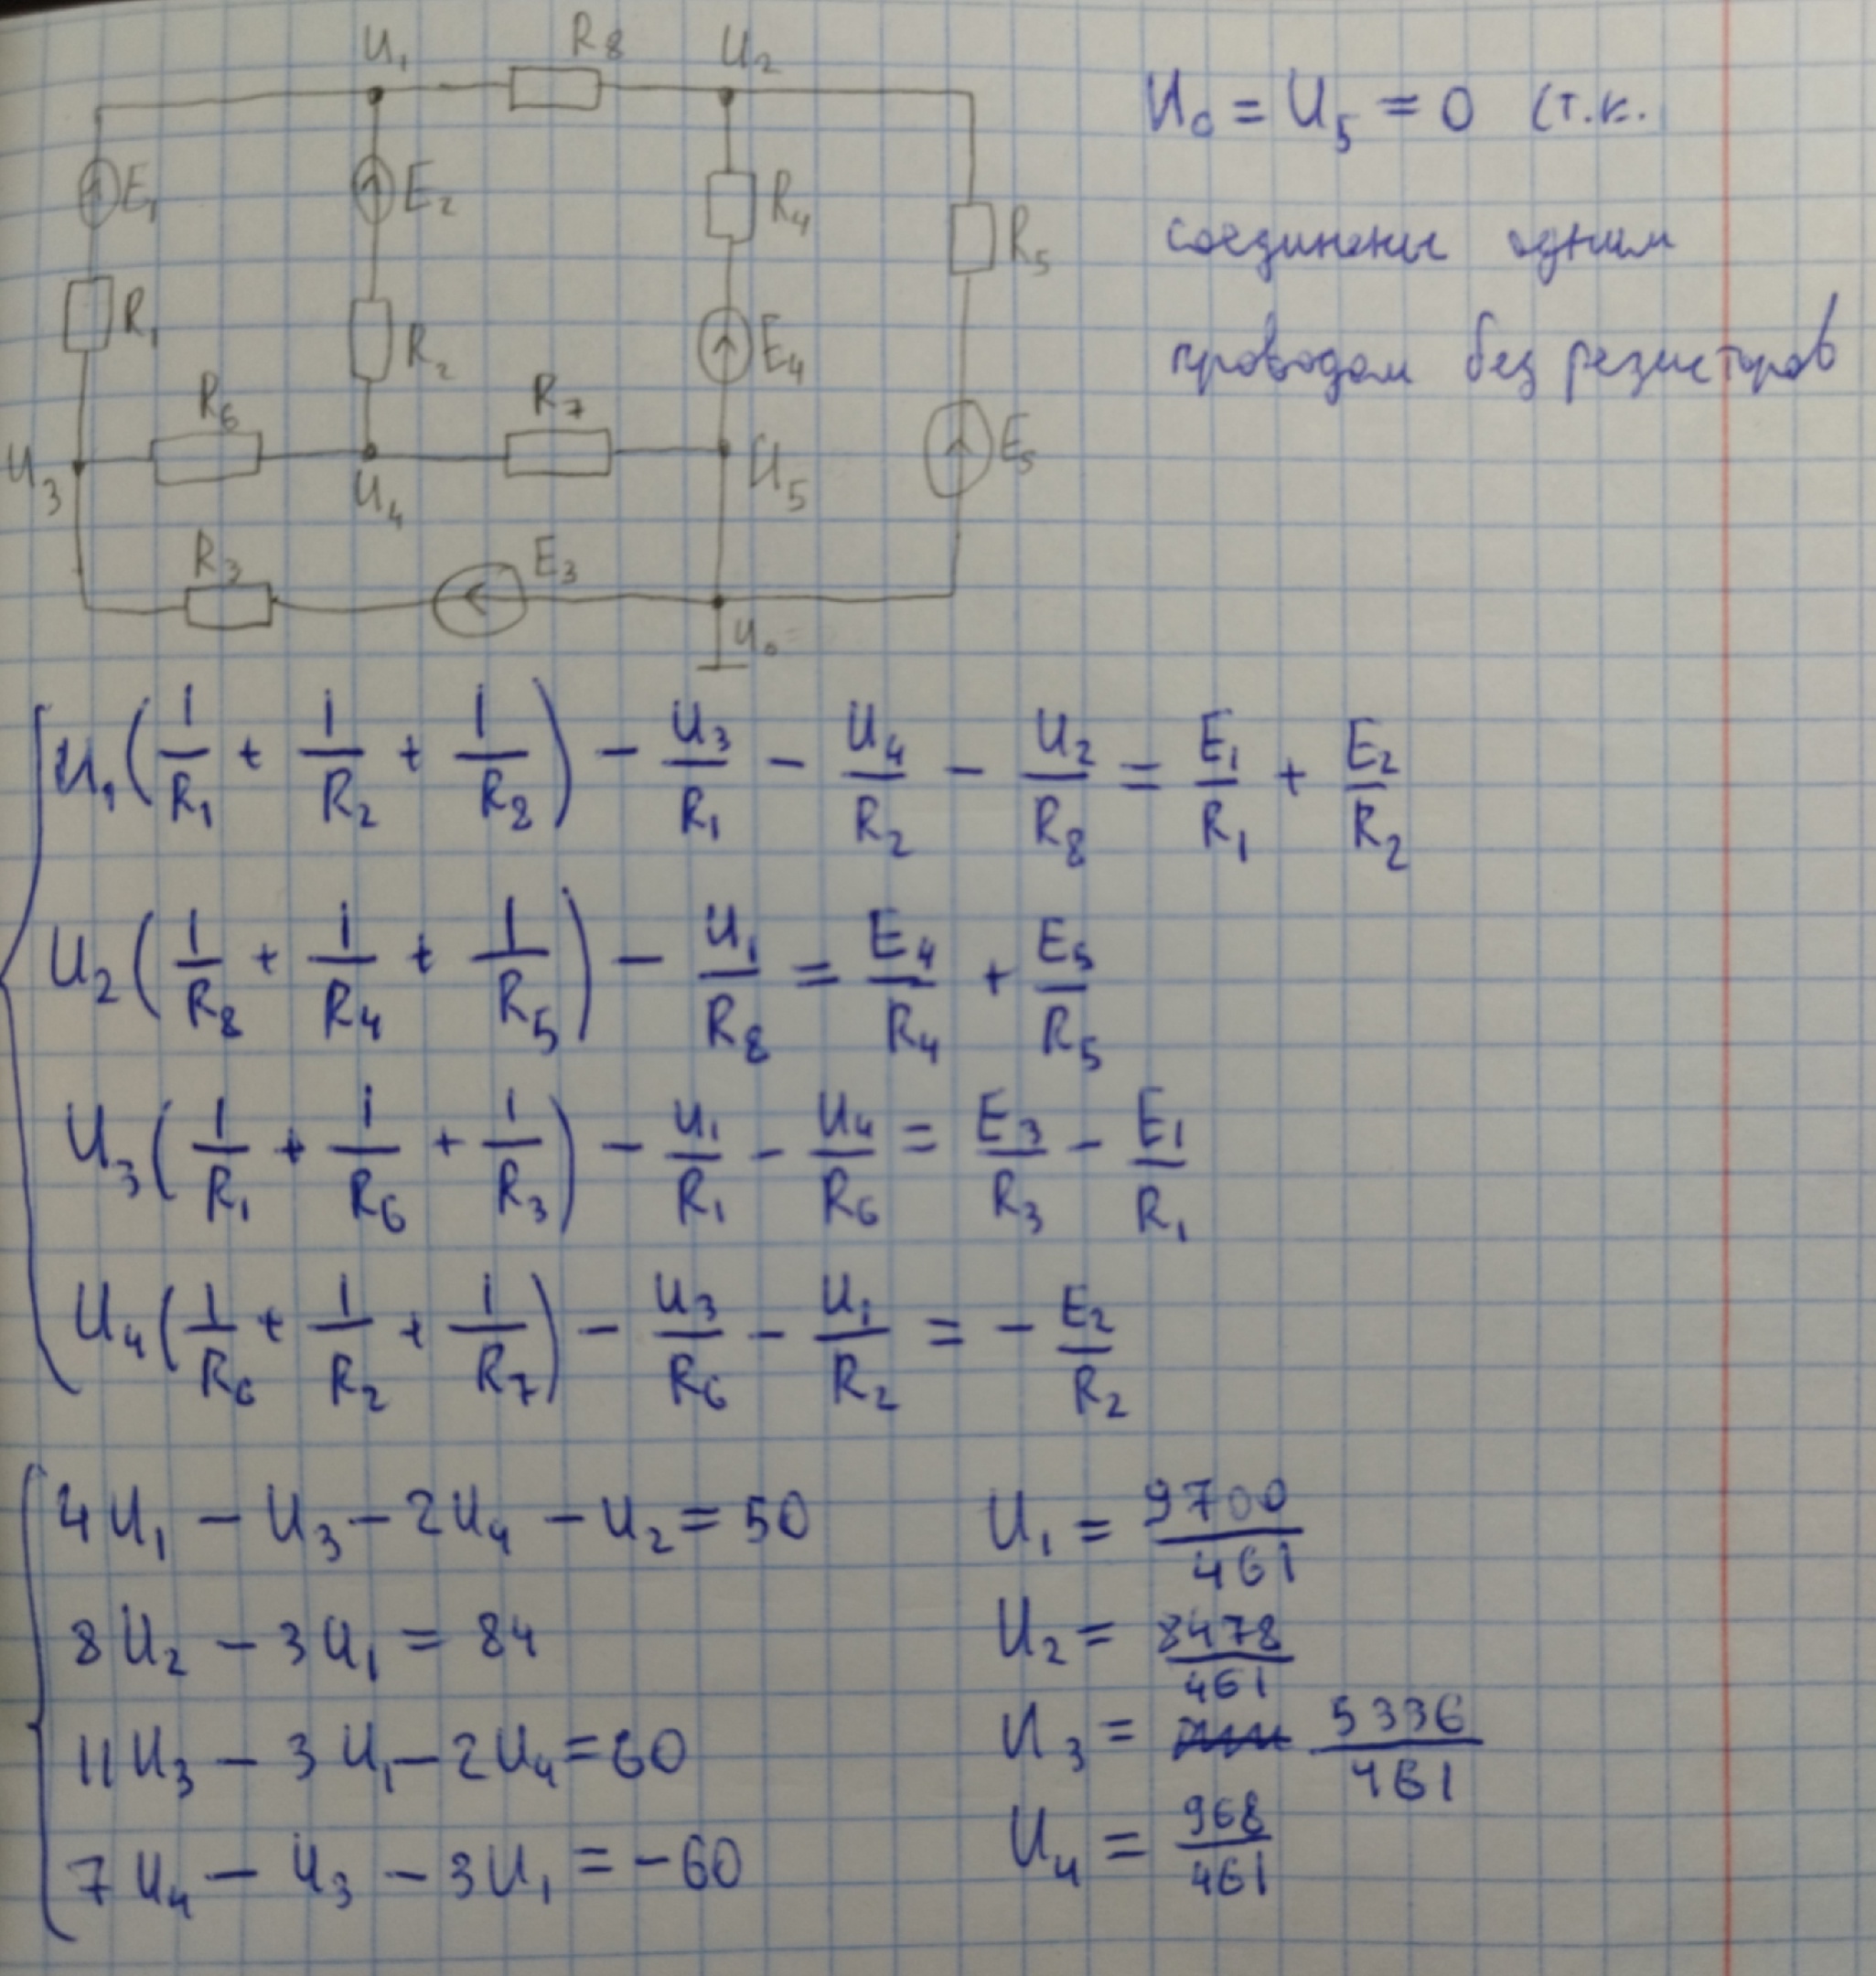 U₁ R₈ U₂
E₁ E₂ R₄ R₅
R₁ R₂ E₄ E₅
R₆ R₇
U₃ U₄ U₅
R₃ E₃
U₀
U₀ = U₅ = 0 (т.к.
соединены одним
проводом без резисторов)
U₁(1/R₁ + 1/R₂ + 1/R₈) − U₃/R₁ − U₄/R₂ − U₂/R₈ = E₁/R₁ + E₂/R₂
U₂(1/R₈ + 1/R₄ + 1/R₅) − U₁/R₈ = E₄/R₄ + E₅/R₅
U₃(1/R₁ + 1/R₆ + 1/R₃) − U₁/R₁ − U₄/R₆ = E₃/R₃ − E₁/R₁
U₄(1/R₆ + 1/R₂ + 1/R₇) − U₃/R₆ − U₁/R₂ = − E₂/R₂
4U₁ − U₃ − 2U₄ − U₂ = 50
8U₂ − 3U₁ = 84
11U₃ − 3U₁ − 2U₄ = 60
7U₄ − U₃ − 3U₁ = −60
U₁ = 9700/461
U₂ = 8478/461
U₃ = 5336/461
U₄ = 968/461